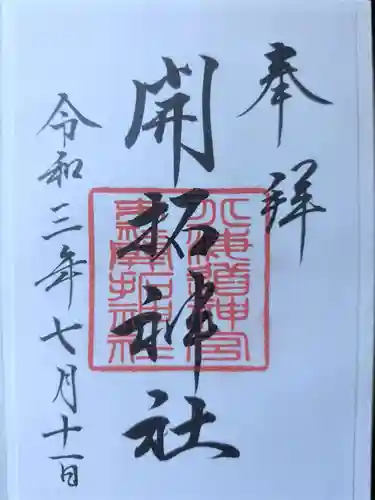 奉拝
開拓神社
北海道神宮
末社開拓神社
令和三年七月十一日